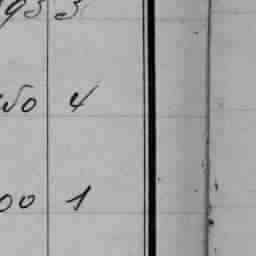 933
50 4
00 1